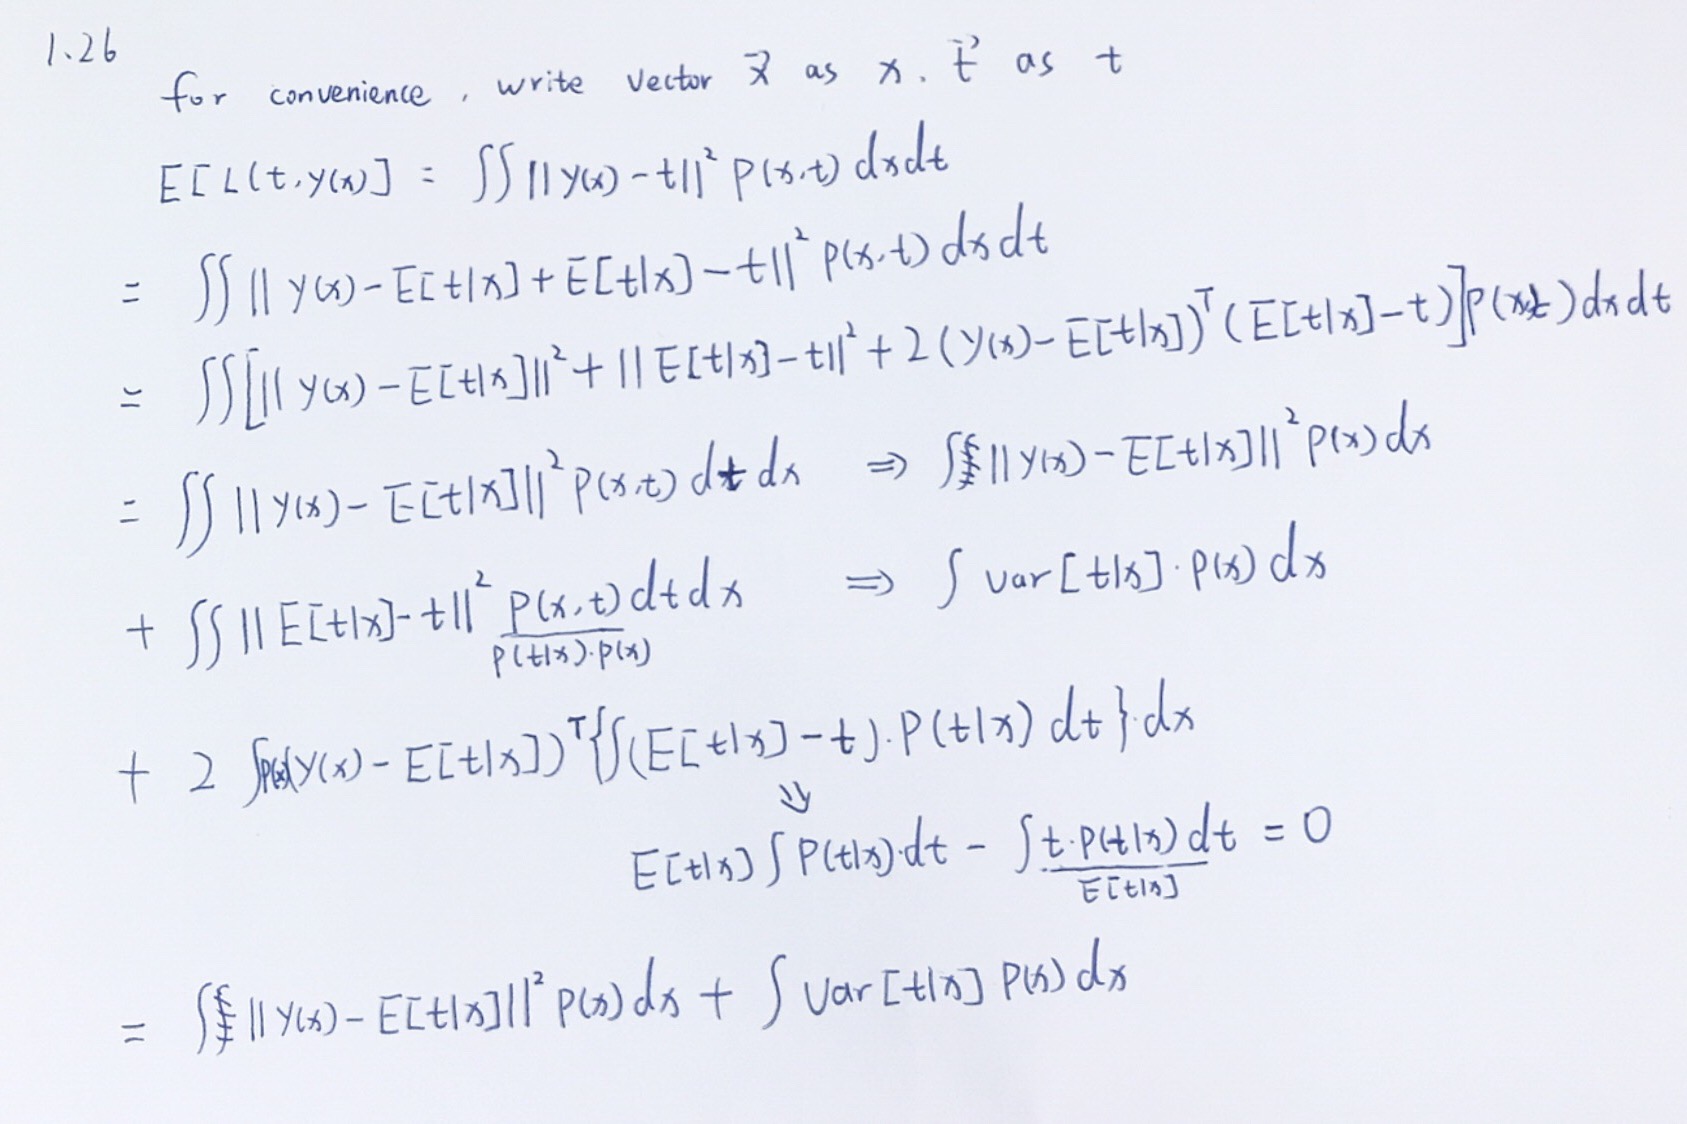 1.26
for convenience, write vector x⃗ as x. t⃗ as t
E[L(t,y(x)] = ∬ ||y(x)-t||² p(x,t) dxdt
= ∬ || y(x)-E[t|x]+E[t|x]-t||² p(x,t) dx dt
= ∬[|| y(x)-E[t|x]||² + || E[t|x]-t||² + 2(y(x)-E[t|x])ᵀ(E[t|x]-t)]p(x,t)dxdt
= ∬ || y(x)- E[t|x]||² p(x,t) dt dx ⇒ ∫ ||y(x)-E[t|x]||² p(x) dx
+ ∬ || E[t|x]-t||² p(x,t) dt dx ⇒ ∫ var[t|x]·p(x) dx
p(t|x)·p(x)
+ 2 ∫p(x)(y(x)-E[t|x])ᵀ{∫(E[t|x]-t)·P(t|x) dt}·dx
⇓
E[t|x] ∫ P(t|x)·dt - ∫ t·P(t|x) dt = 0
E[t|x]
= ∫ || y(x)-E[t|x]||² p(x) dx + ∫ var[t|x] p(x) dx